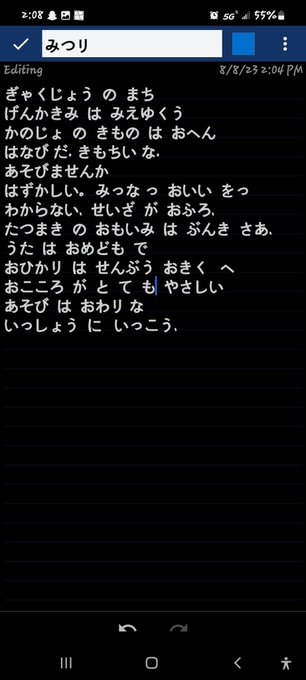 2:08 5G 55%
みつリ
Editing 8/8/23 2:04 PM
ぎゃくじょう の まち
げんかきみ は みえゆくう
かのじょ の きもの は おへん
はなび だ. きもちい な.
あそびませんか
はずかしい。みっな っ おいい をっ
わからない、せいざ が おふろ.
たつまき の おもいみ は ぶんき さあ.
うた は おめども で
おひかり は せんぶう おきく へ
おこころ が と て も やさしい
あそび は おわり な
いっしょう に いっこう.